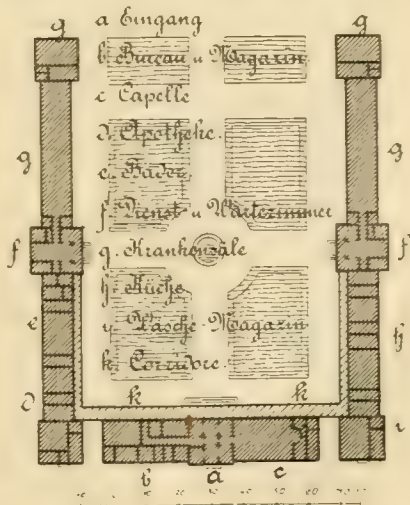 g
g
a Eingang
b. Bureau u Magazin
c Capelle
d. Apotheke.
e. Bäder
f. Dienst u Wartezimmer
g. Krankensäle
h. Küche
i. Wäsche-Magazin
k. Corridore.
g
g
f
f
e
h
d
i
k
k
b
a
c